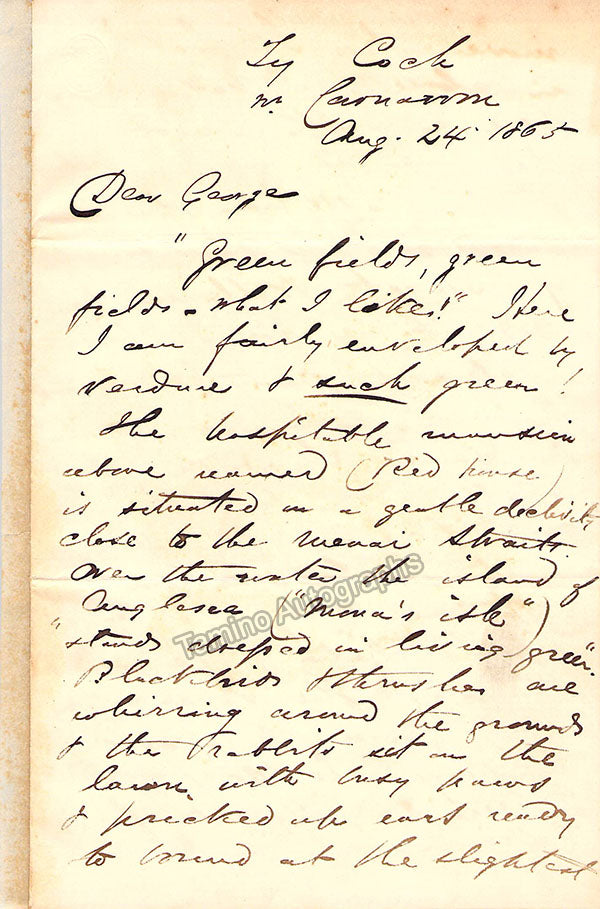 Ty Coch
nr Carnarvon
Aug. 24 1865
Dear George
"Green fields, green
fields - what I likes!" Here
I am fairly enveloped by
verdure & such green!
The hospitable mansion
above named (Red house)
is situated on a gentle declivity
close to the Menai Straits.
Over the water the island of
Anglesea ("Mona's isle")
"stands dressed in living green".
Blackbirds & thrushes are
whirring around the grounds
& the rabbits sit on the
lawn with busy paws
& pricked up ears ready
to bound at the slightest
Tamino Autographs